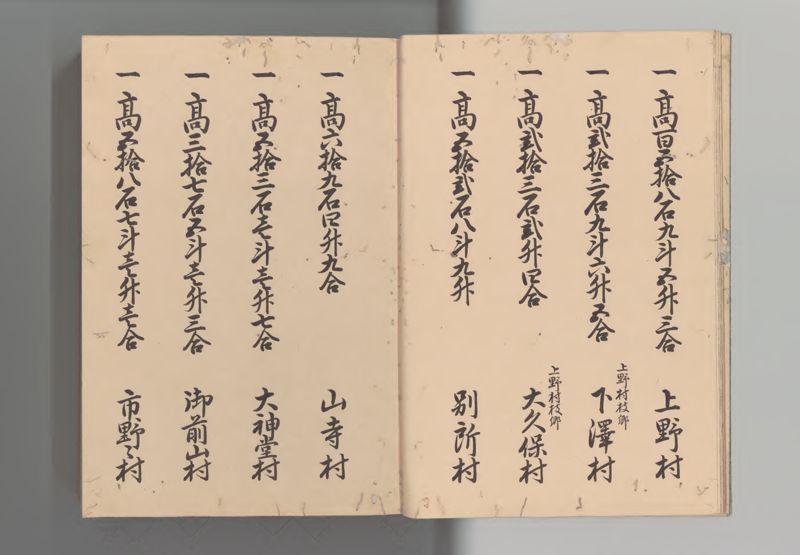 一髙百五拾八石九斗五升三合 上野村
一髙弐拾三石九斗六升五合 上野村枝郷 下澤村
一髙弐拾三石弐升四合 上野村枝郷 大久保村
一髙五拾弐石八斗九升 別所村
一髙六拾九石四升九合 山寺村
一髙五拾三石壱斗壱升七合 大神堂村
一髙三拾七石五斗壱升三合 御前山村
一髙五拾八石七斗壱升壱合 市野々村